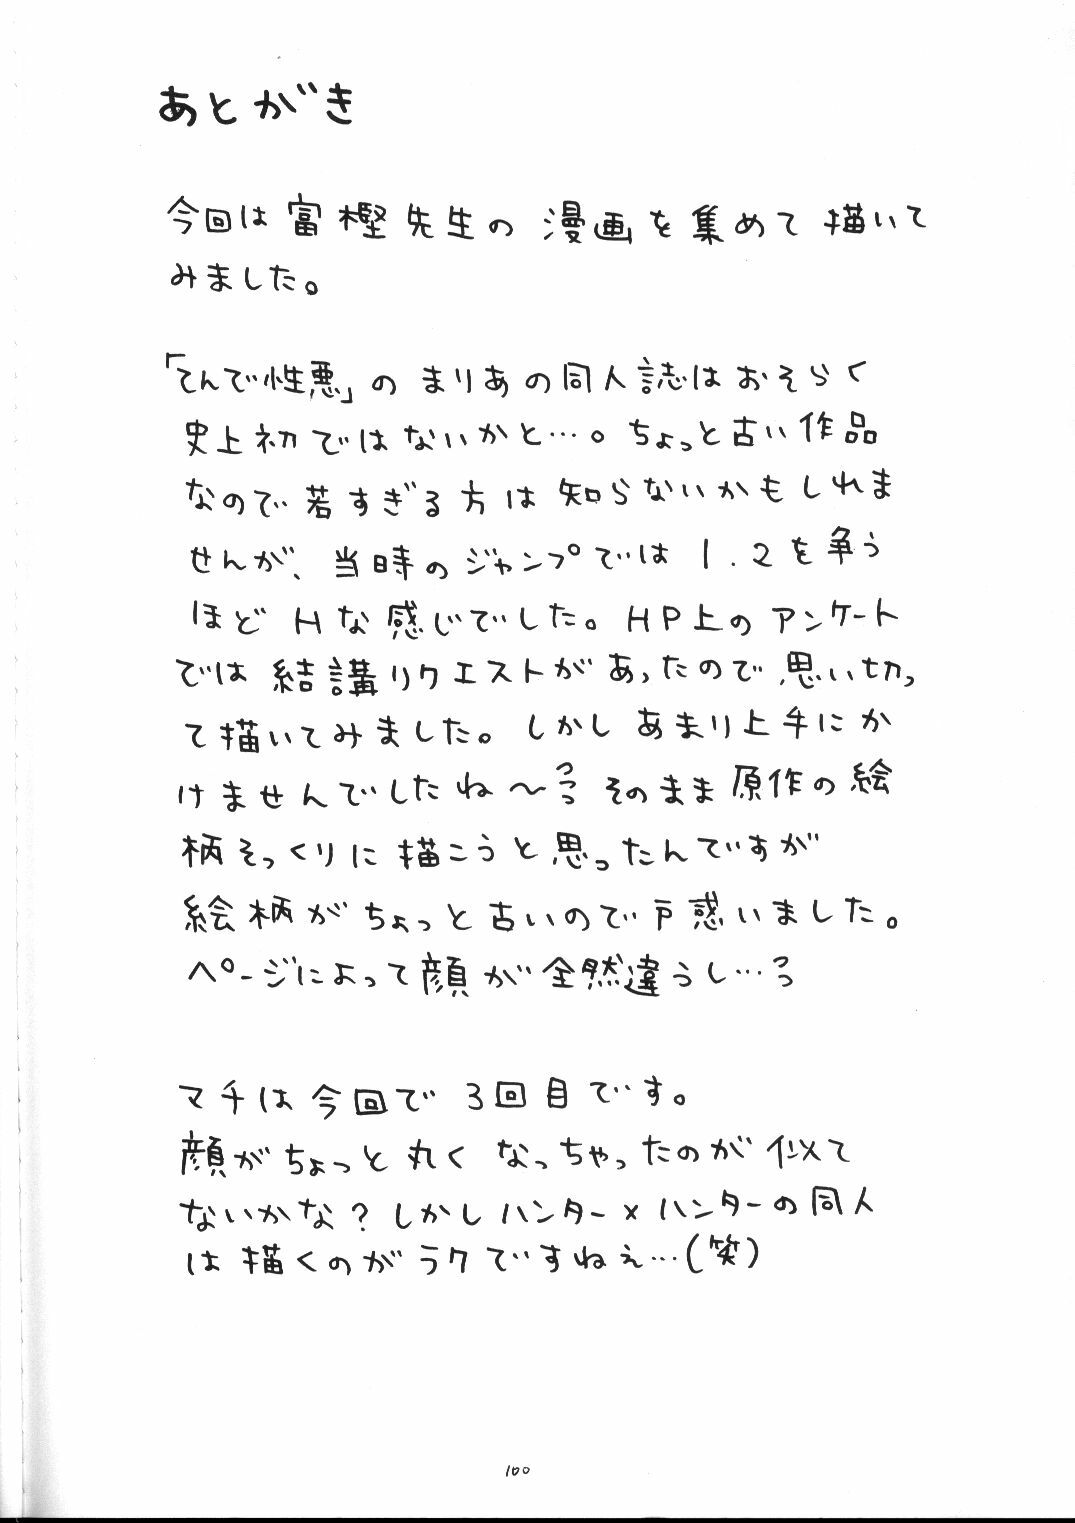 あとがき
今回は富樫先生の漫画を集めて描いて
みました。
「てんで性悪」のまりあの同人誌はおそらく
史上初ではないかと…。ちょっと古い作品
なので若すぎる方は知らないかもしれま
せんが、当時のジャンプでは1.2を争う
ほどHな感じでした。HP上のアンケート
では結講リクエストがあったので思い切っ
て描いてみました。しかしあまり上手にか
けませんでしたね〜 そのまま原作の絵
柄そっくりに描こうと思ったんですが
絵柄がちょっと古いので戸惑いました。
ページによって顔が全然違うし…
マチは今回で3回目です。
顔がちょっと丸くなっちゃったのが似て
ないかな?しかしハンター×ハンターの同人
は描くのがラクですねぇ…(笑)
100